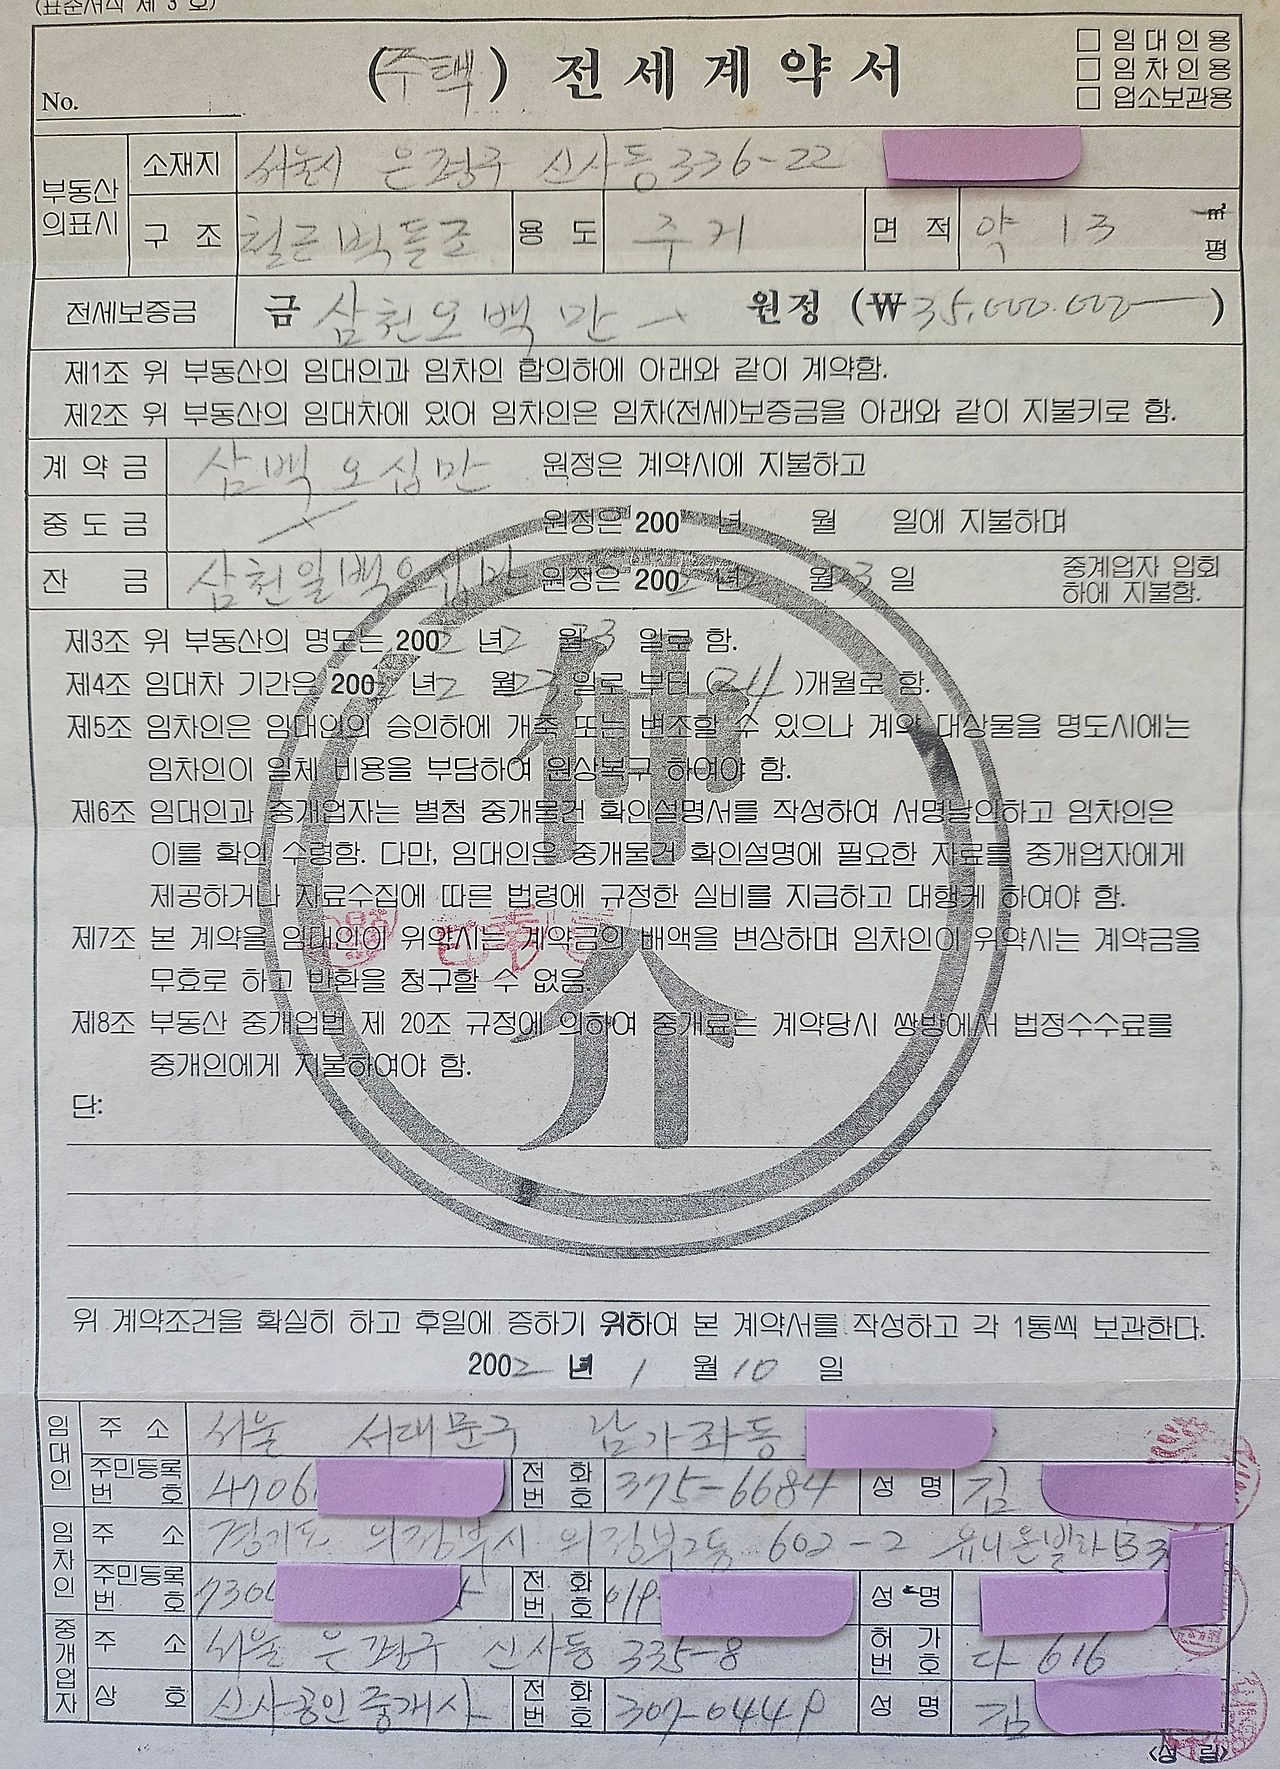 (표준서식 제 3 호)
(주택) 전세계약서
□ 임대인용
□ 임차인용
□ 업소보관용
No.
부동산의표시 소재지 서울시 은평구 신사동 336-22
구조 철근벽돌조 용도 주거 면적 약 13 ㎡ 평
전세보증금 금 삼천오백만 원정 (₩35,000.000)
제1조 위 부동산의 임대인과 임차인 합의하에 아래와 같이 계약함.
제2조 위 부동산의 임대차에 있어 임차인은 임차(전세)보증금을 아래와 같이 지불키로 함.
계약금 삼백오십만 원정은 계약시에 지불하고
중도금 원정은 200 년 월 일에 지불하며
잔금 삼천일백오십만 원정은 2002년 2월 23일 중계업자 입회하에 지불함.
제3조 위 부동산의 명도는 2002년 2월 23일로 함.
제4조 임대차 기간은 2002년 2월 23일로 부터 (24)개월로 함.
제5조 임차인은 임대인의 승인하에 개축 또는 변조할 수 있으나 계약 대상물을 명도시에는
임차인이 일체 비용을 부담하여 원상복구 하여야 함.
제6조 임대인과 중개업자는 별첨 중개물건 확인설명서를 작성하여 서명날인하고 임차인은
이를 확인 수령함. 다만, 임대인은 중개물건 확인설명에 필요한 자료를 중개업자에게
제공하거나 자료수집에 따른 법령에 규정한 실비를 지급하고 대행케 하여야 함.
제7조 본 계약을 임대인이 위약시는 계약금의 배액을 변상하며 임차인이 위약시는 계약금을
무효로 하고 반환을 청구할 수 없음.
제8조 부동산 중개업법 제 20조 규정에 의하여 중개료는 계약당시 쌍방에서 법정수수료를
중개인에게 지불하여야 함.
단:
仲介
위 계약조건을 확실히 하고 후일에 증하기 위하여 본 계약서를 작성하고 각 1통씩 보관한다.
2002년 1월 10일
임대인 주소 서울 서대문구 남가좌동
주민등록번호 4706 전화번호 375-6684 성명 김
임차인 주소 경기도 의정부시 의정부2동 602-2 유니온빌라 B3
주민등록번호 730 전화번호 019- 성명
중개업자 주소 서울 은평구 신사동 335-8 허가번호 다-616
상호 신사공인중개사 전화번호 307-0449 성명 김
<성림>